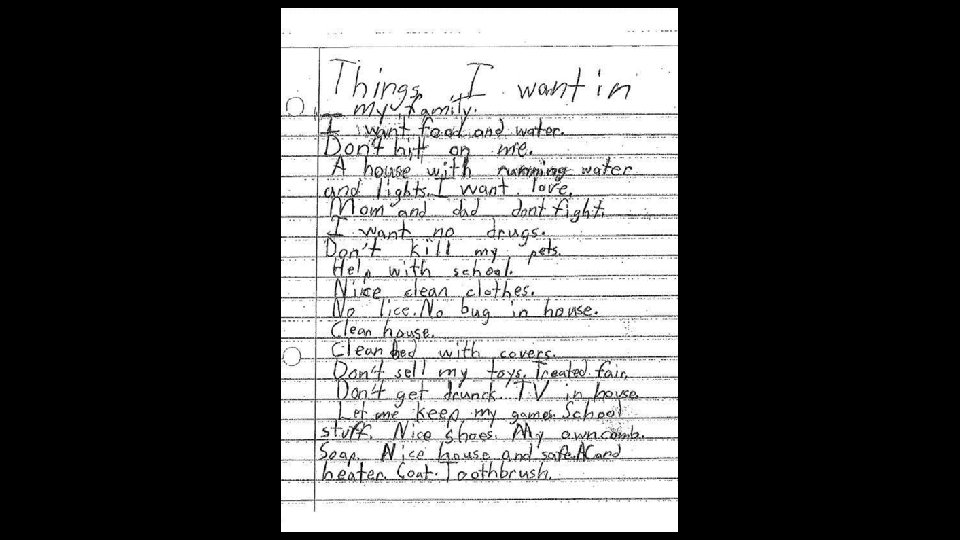 Things I want in
my family.
I want food and water.
Don't hit on me.
A house with running water
and lights. I want love.
Mom and dad dont fight.
I want no drugs.
Don't kill my pets.
Help with school.
Nice clean clothes.
No lice. No bug in house.
Clean house.
Clean bed with covers.
Don't sell my toys. Treated fair.
Don't get drunck. TV in house
Let me keep my games. School
stuff. Nice shoes. My own comb.
Soap. Nice house and safe. AC and
heater. Coat. Toothbrush.